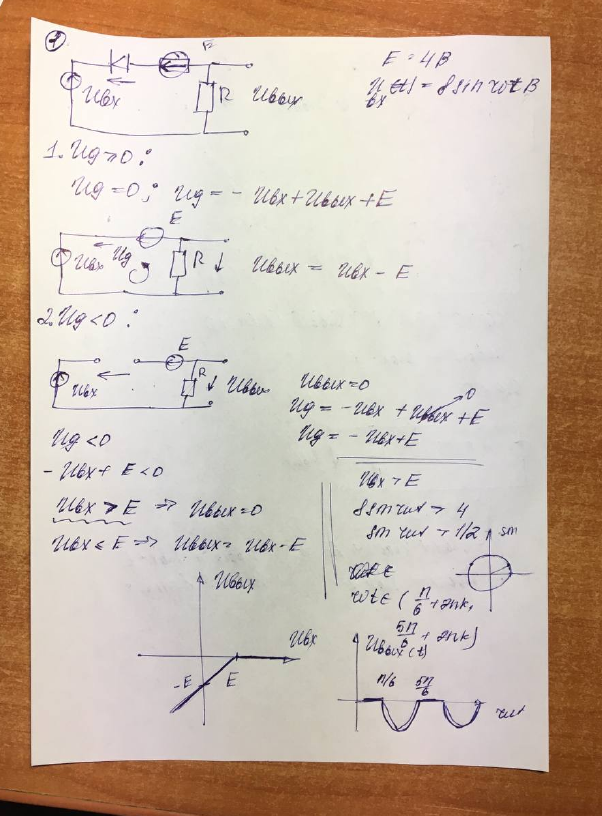 1
E
Uвх
R
Uвых
E = 4В
Uвх(t) = 8 sin wt В
1. Uд ≥ 0 :
Uд = 0 ; Uд = - Uвх + Uвых + E
E
Uвх
Uд
R
Uвых = Uвх - E
2. Uд < 0 :
E
Uвх
R
Uвых
Uвых = 0
Uд = - Uвх + Uвых + E
0
Uд = - Uвх + E
Uд < 0
- Uвх + E < 0
Uвх > E ⇒ Uвых = 0
Uвх ≤ E ⇒ Uвых = Uвх - E
Uвх > E
8 sin wt > 4
sin wt > 1/2
sin
wt ∈ ( π/6 + 2πk,
5π/6 + 2πk)
Uвых
Uвх
-E
E
Uвых(t)
π/6
5π/6
wt